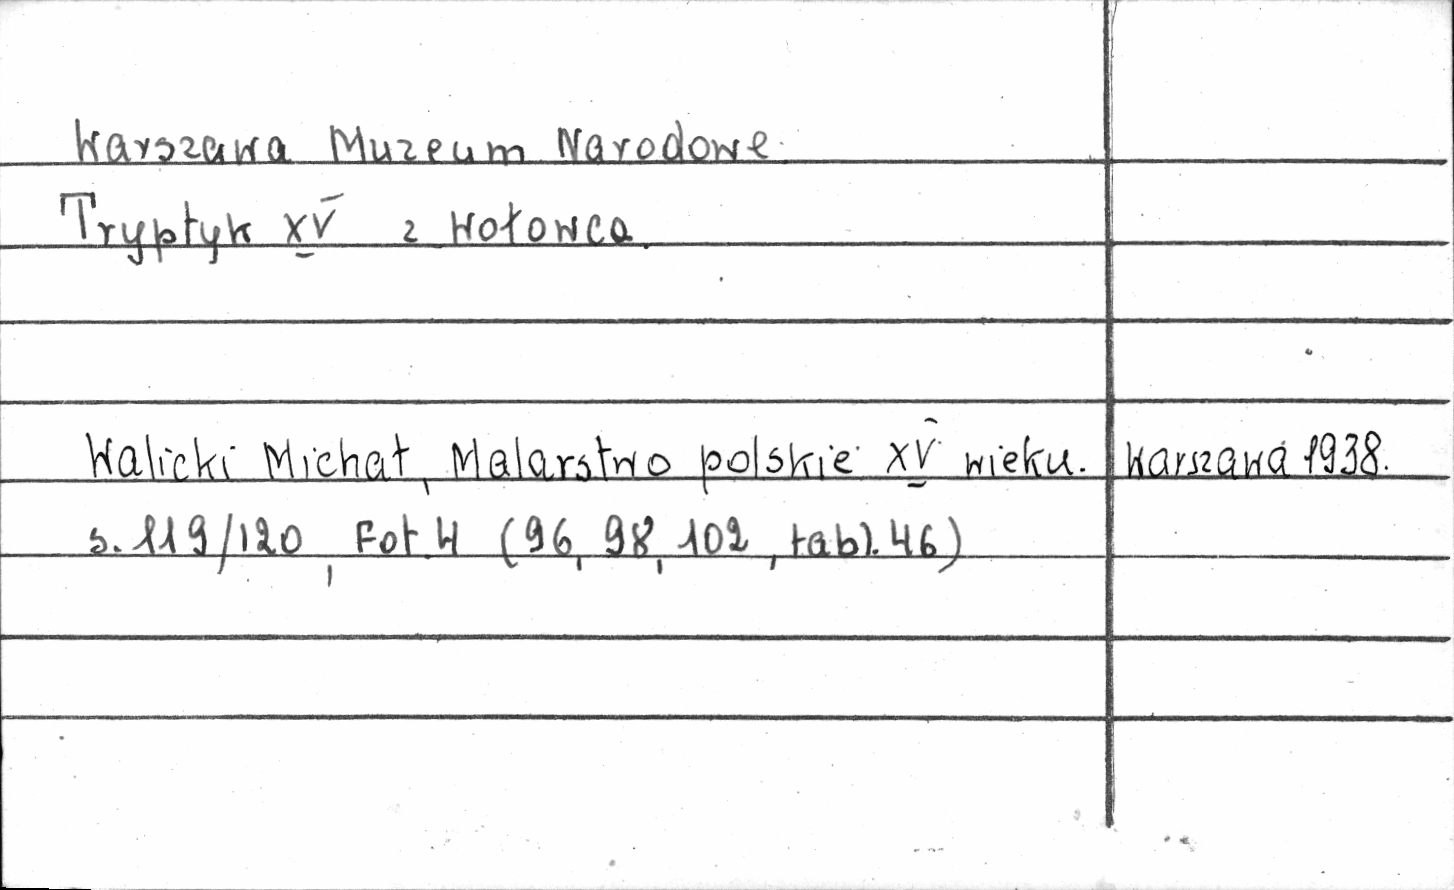 Warszawa Muzeum Narodowe.
Tryptyk XV z Wołowca.
Walicki Michał, Malarstwo polskie XV wieku. Warszawa 1938.
s. 119/120, Fot. 4 (96, 98, 102, tabl. 46)